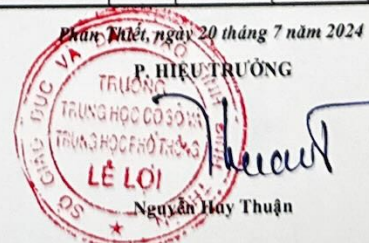 Phan Thiết, ngày 20 tháng 7 năm 2024
P. HIỆU TRƯỞNG
SỞ GIÁO DỤC VÀ
TRƯỜNG
TRUNG HỌC CƠ SỞ VÀ
TRUNG HỌC PHỔ THÔNG
LÊ LỢI
Nguyễn Huy Thuận